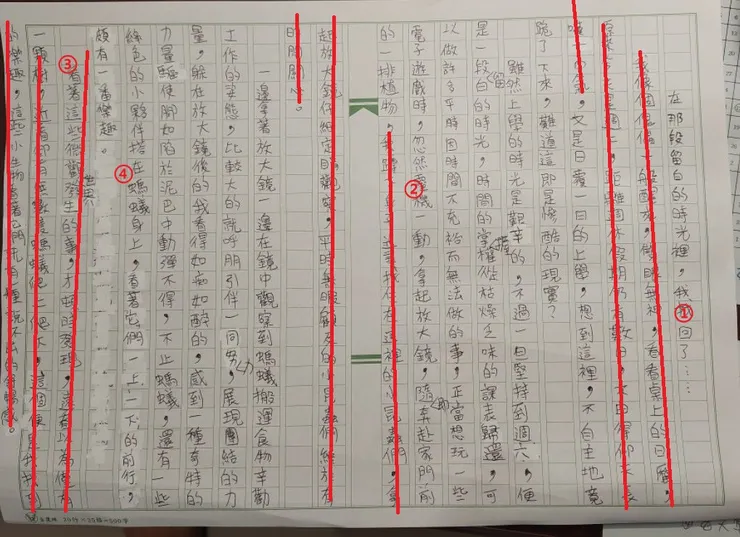 在那段留白的時光裡,我①回了……
我像個傀儡一般醒來,
看看桌上的日曆,
又是日復一日的上學,想到這裡,不自主地竟
跪了下來,難道這即是慘酷的現實?
雖然上學的時光是艱辛的,不過一旦堅持到週六,便
是一段留白的時光,時間的掌握從枯燥乏味的課表歸還,可
以做許多平時因時間不充裕而無法做的事,正當想玩一些
電子遊戲時,忽然靈機②動,拿起放大鏡,隨即奔赴家門前
的一排植物,
的小昆蟲們,拿
起放大鏡仔細定睛觀察,平時無暇顧及的小昆蟲們
一邊拿著放大鏡一邊在鏡中觀察到螞蟻搬運食物辛勤
工作的姿態,比較大的就呼朋引伴一同努力,展現團結的力
量,躲在放大鏡後的我看得如痴如醉的,感到一種奇特的
力量驅使開如陷於泥巴中動彈不得,不止螞蟻,還有一些
綠色的小夥伴搭④在螞蟻身上,看著它們一上一下的前行,
頗有一番樂趣。
③看著這些微觀世界發生的事,才頓時發現,遠看以為僅有
一顆樹,近看卻有無數隻螞蟻爬上爬下,這個
的樂趣,這些小生物看著它們就有一種說不出的舒暢感。